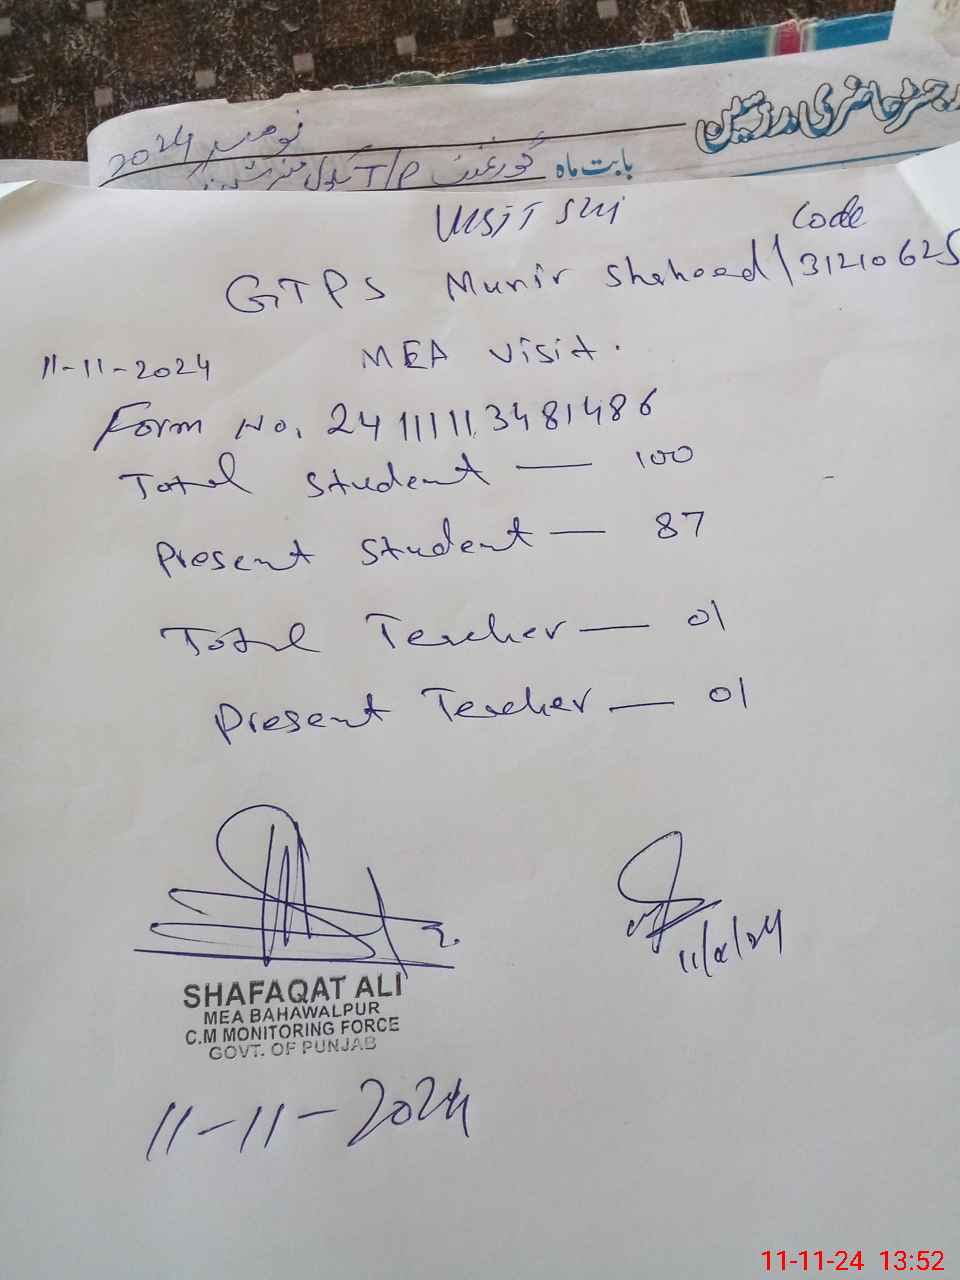 رجسٹر حاضری مدرسین
نومبر 2024
بابت ماہ گورنمنٹ T/P سکول منیر شہید
VISIT
Code
GTPS Munir Shaheed / 31210625
11-11-2024 MEA Visit.
Form No. 24111113481486
Total Student — 100
Present Student — 87
Total Teacher — 01
Present Teacher — 01
SHAFAQAT ALI
MEA BAHAWALPUR
C.M MONITORING FORCE
GOVT. OF PUNJAB
11-11-2024
11-11-24 13:52